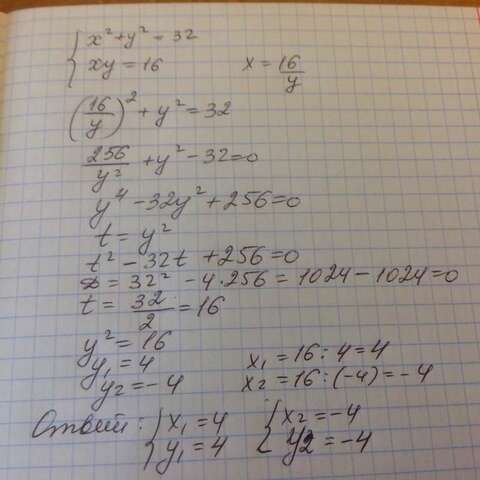 { x² + y² = 32
{ xy = 16     x = 16/y
(16/y)² + y² = 32
256/y² + y² - 32 = 0
y⁴ - 32y² + 256 = 0
t = y²
t² - 32t + 256 = 0
D = 32² - 4·256 = 1024 - 1024 = 0
t = 32/2 = 16
y² = 16
y₁ = 4     x₁ = 16 : 4 = 4
y₂ = -4     x₂ = 16 : (-4) = -4
Ответ: { x₁ = 4     { x₂ = -4
{ y₁ = 4     { y₂ = -4